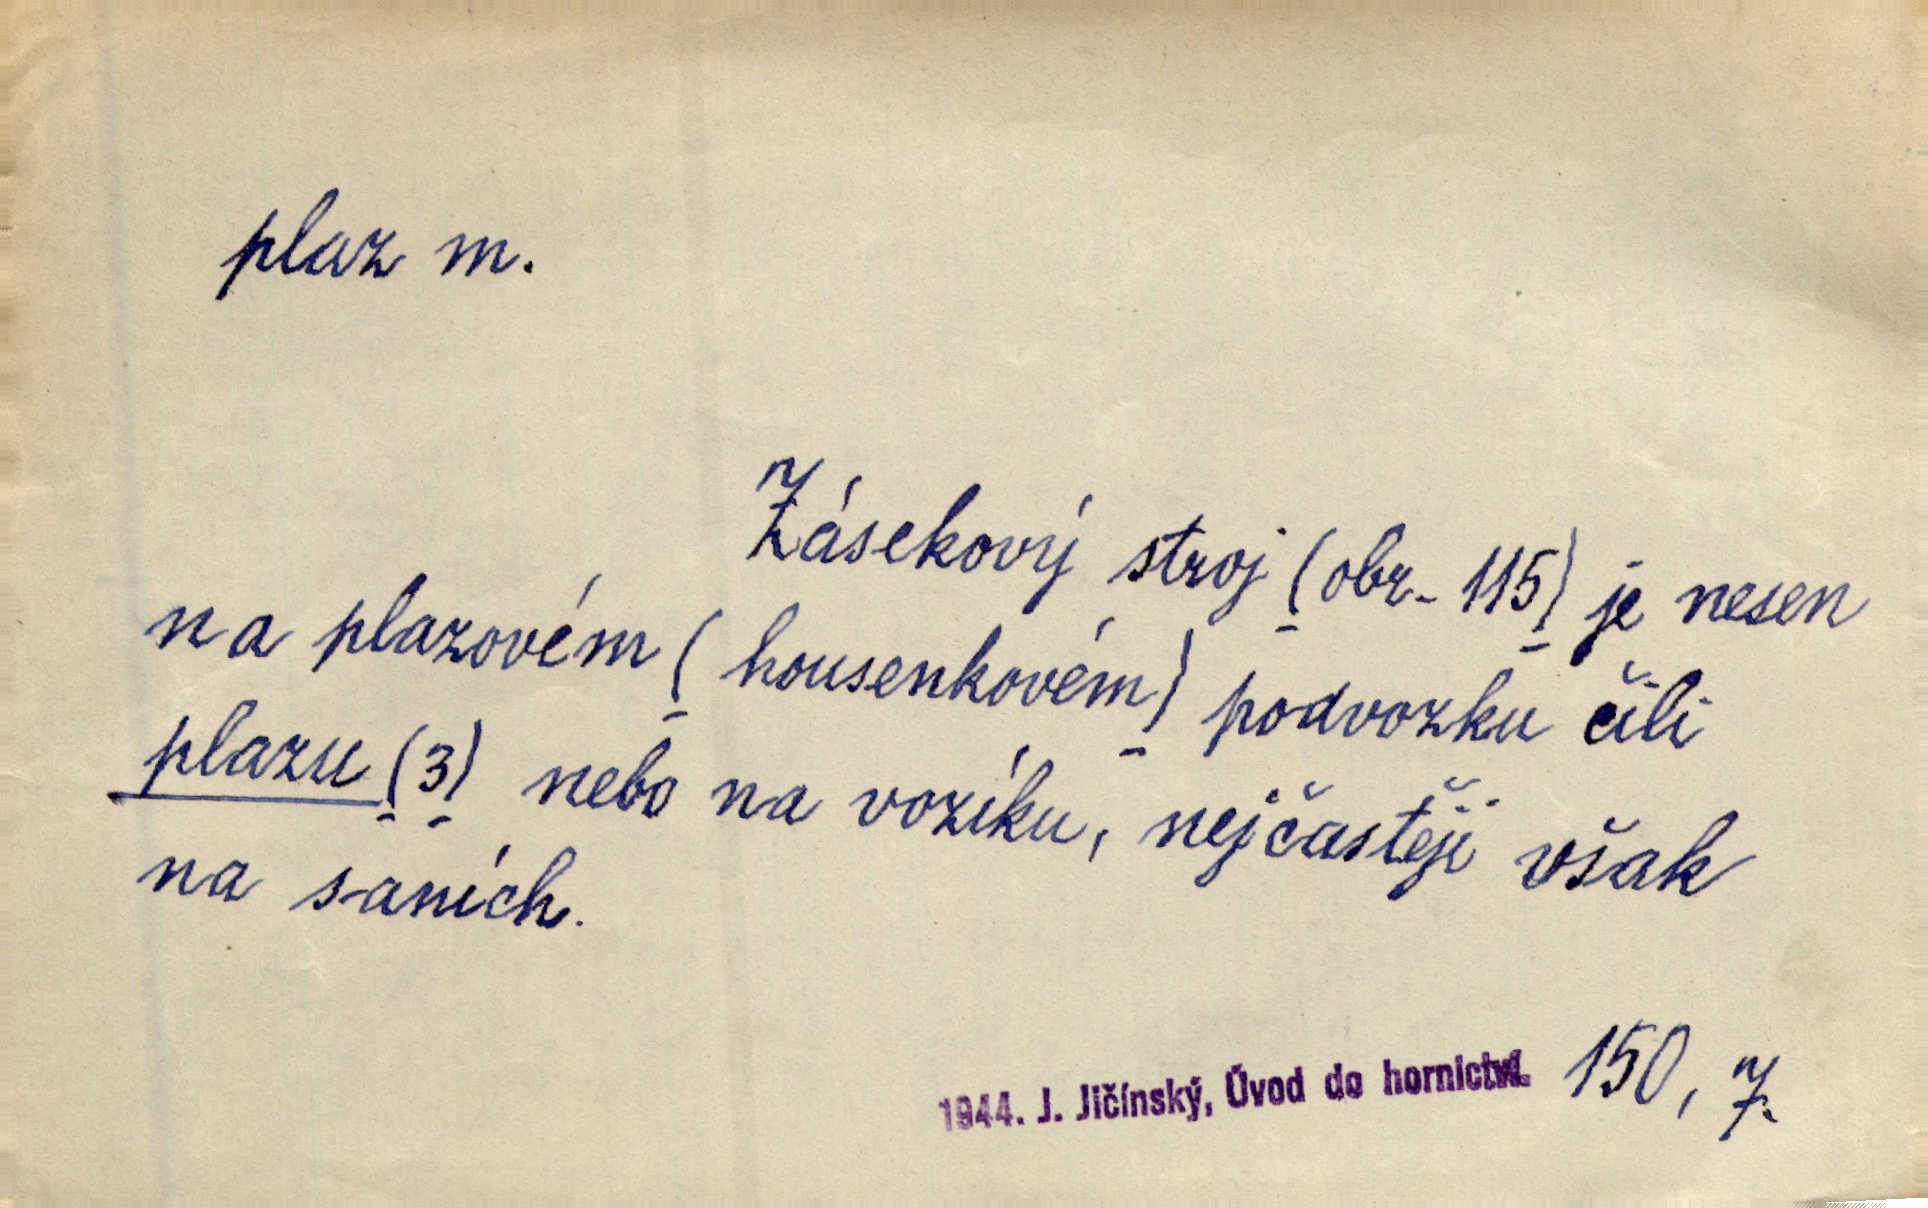 plaz m.
Zásekový stroj (obr. 115) je nesen
na plazovém (housenkovém) podvozku čili
plazu (3) nebo na vozíku, nejčastěji však
na saních.
1944. J. Jičínský, Úvod do hornictví. 150, 7.